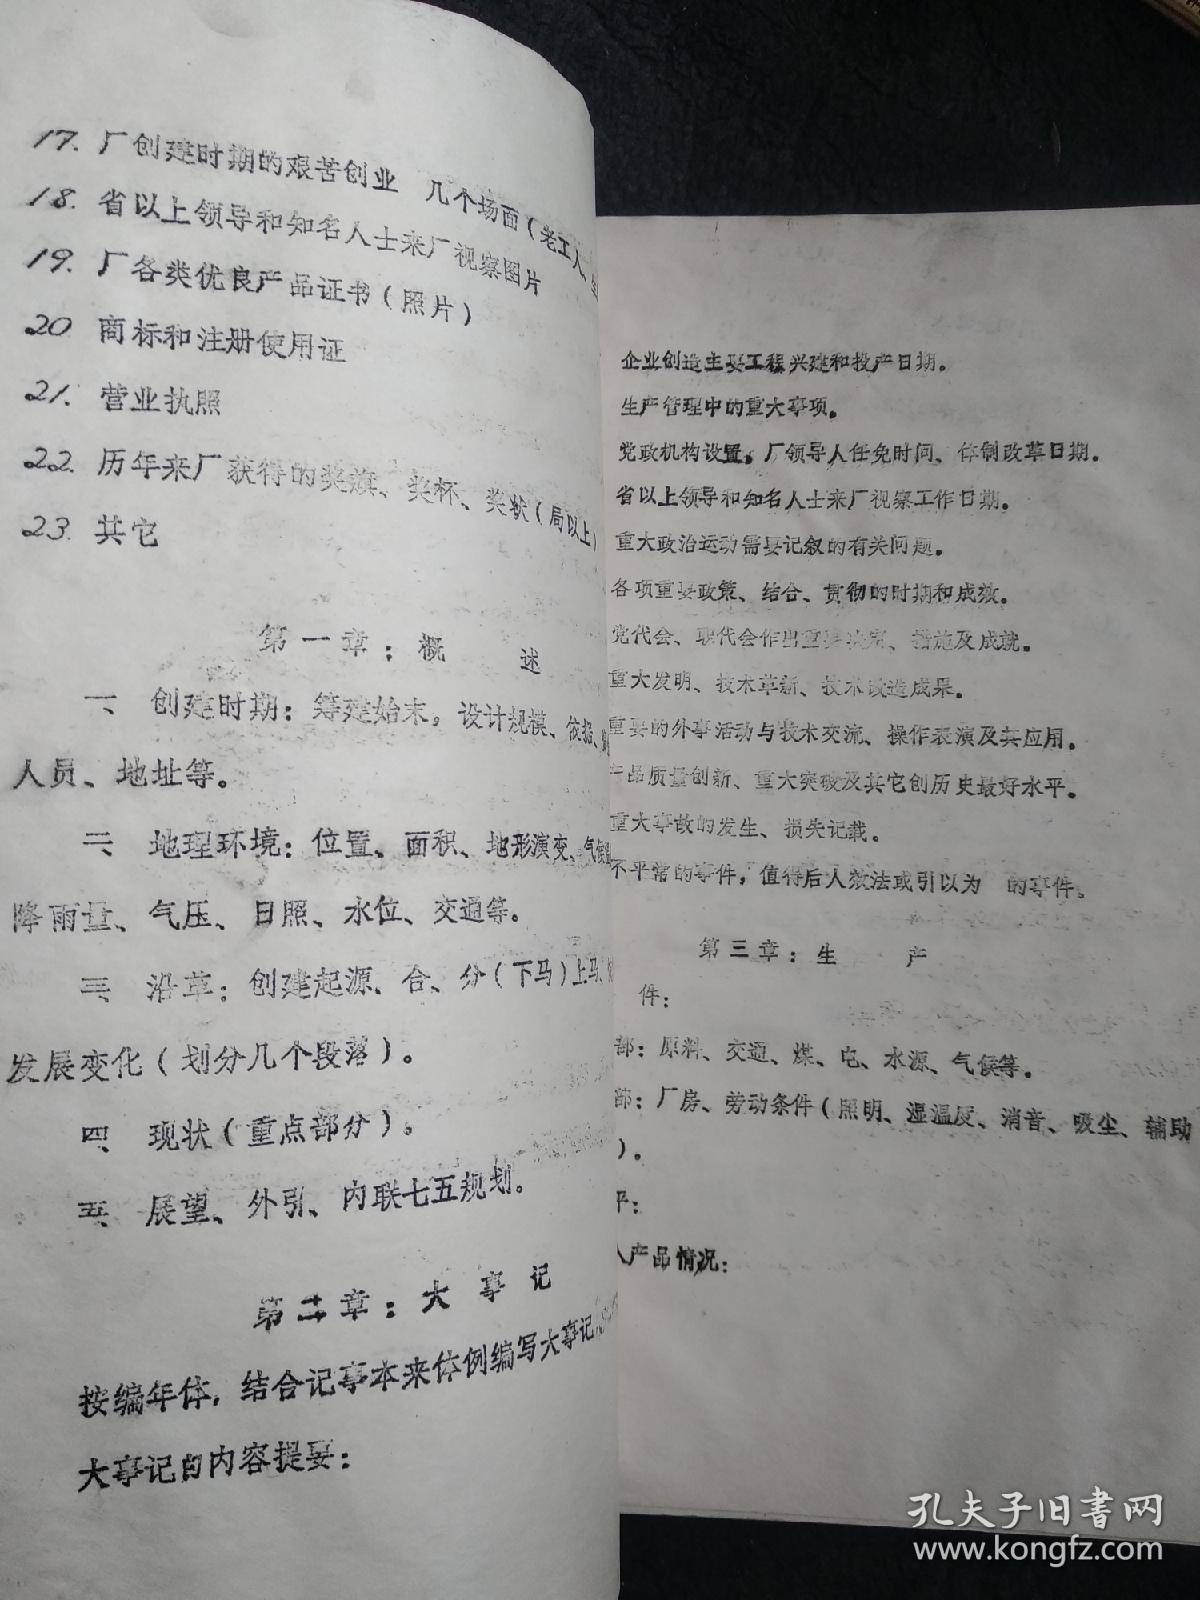 17. 厂创建时期的艰苦创业 几个场面（老工人、
18. 省以上领导和知名人士来厂视察图片
19. 厂各类优良产品证书（照片）
20 商标和注册使用证
21. 营业执照
22. 历年来厂获得的奖旗、奖杯、奖状（局以上）
23. 其它
第一章：概 述
一、创建时期：筹建始末。设计规模、依据、
人员、地址等。
二、地理环境：位置、面积、地形演变、气候
降雨量、气压、日照、水位、交通等。
三、沿革：创建起源、合、分（下马）上马、
发展变化（划分几个段落）。
四、现状（重点部分）。
五、展望、外引、内联七五规划。
第二章：大事记
按编年体，结合记事本来体例编写大事记
大事记的内容提要：
企业创造主要工程兴建和投产日期。
生产管理中的重大事项。
党政机构设置。厂领导人任免时间、体制改革日期。
省以上领导和知名人士来厂视察工作日期。
重大政治运动需要记叙的有关问题。
各项重要政策、结合、贯彻的时期和成效。
党代会、职代会作出重要决定、措施及成就。
重大发明、技术革新、技术改造成果。
重要的外事活动与技术交流、操作表演及其应用。
产品质量创新、重大突破及其它创历史最好水平。
重大事故的发生、损失记载。
不平常的事件，值得后人效法或引以为 的事件。
第三章：生 产
件：
部：原料、交通、煤、电、水源、气候等。
部：厂房、劳动条件（照明、湿温度、消音、吸尘、辅助
）。
平：
产品情况：
孔夫子旧书网
www.kongfz.com